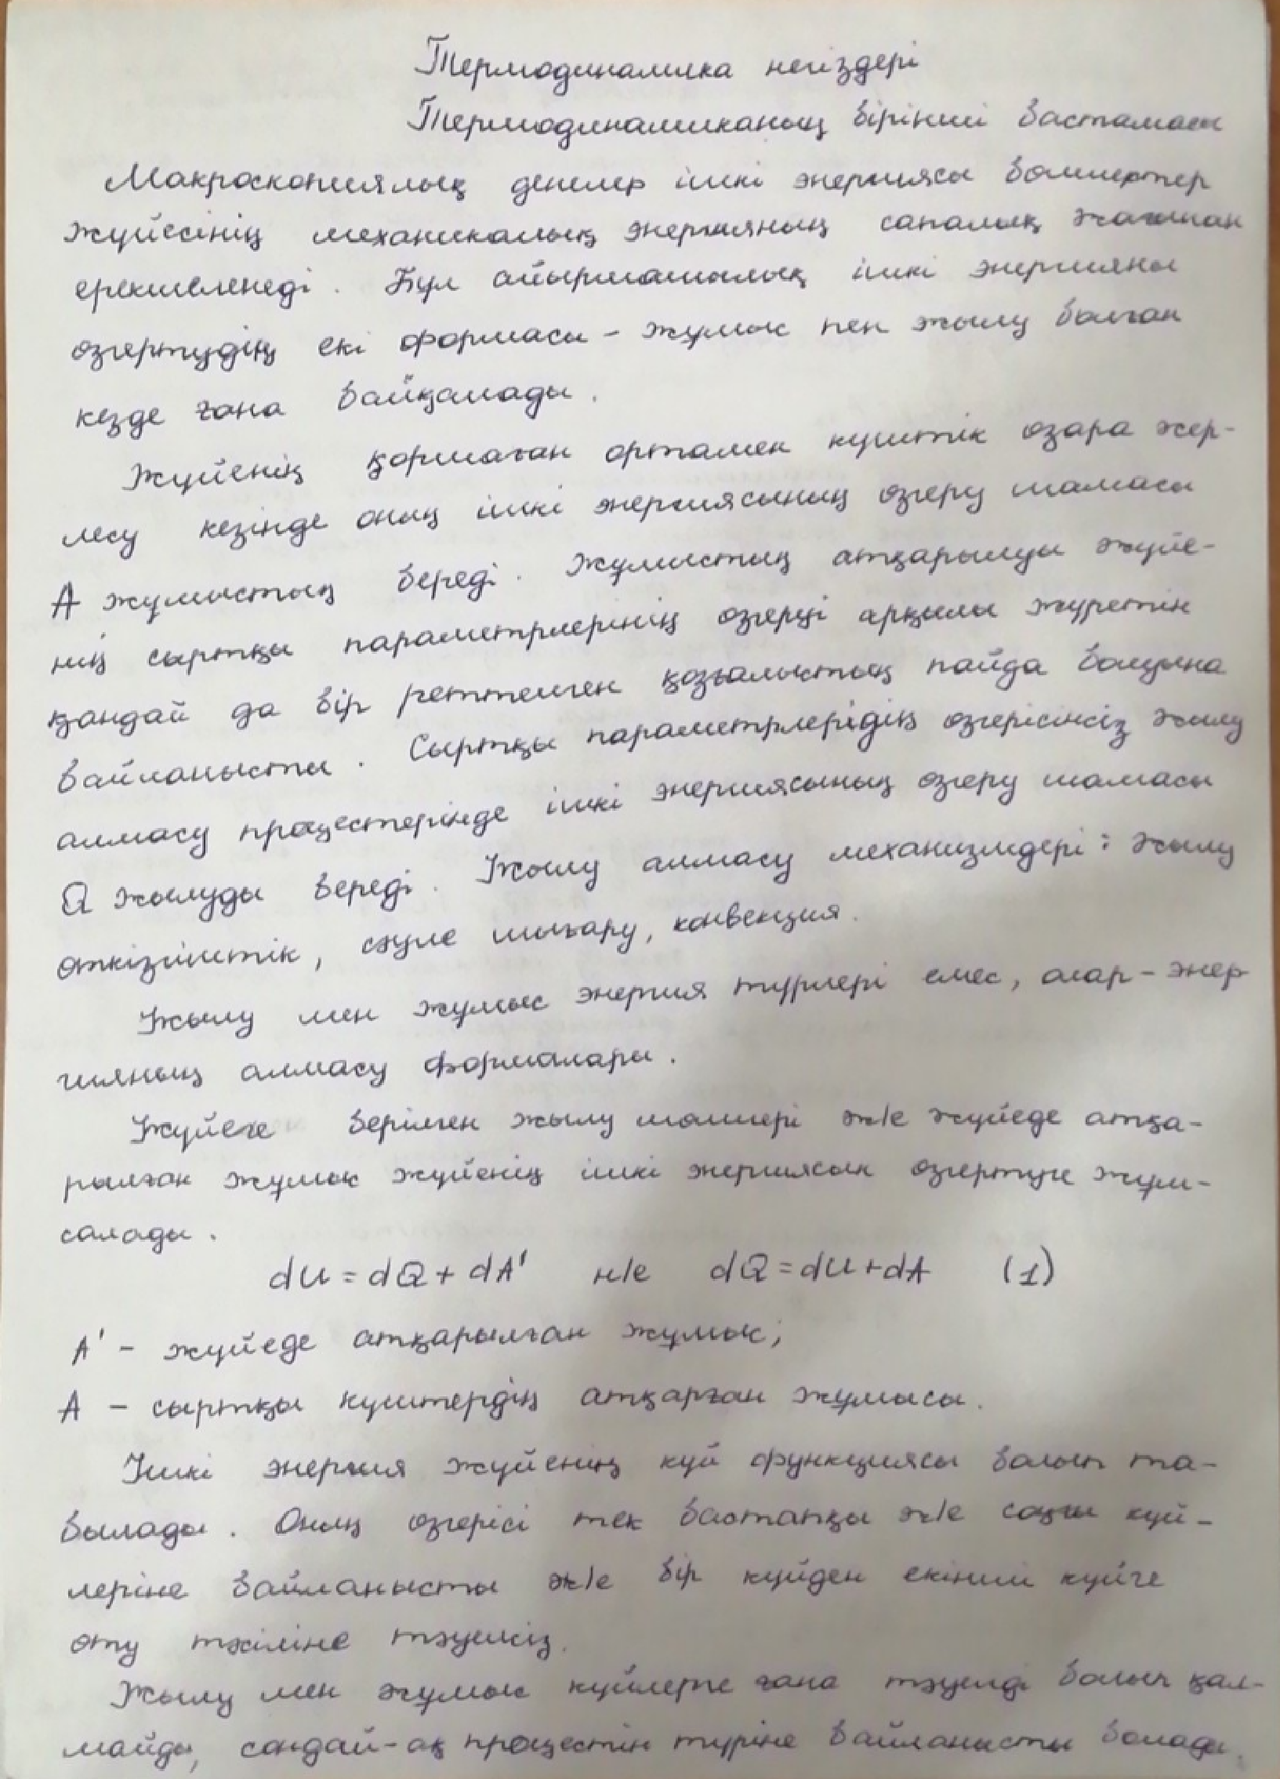 Термодинамика негіздері
Термодинамиканың бірінші бастамасы
Макроскопиялық денелер ішкі энергиясы бөлшектер
жүйесінің механикалық энергияның сапалық жағынан
ерекшеленеді. Бұл айырмашылық ішкі энергияны
өзгертудің екі формасы – жұмыс пен жылу болған
кезде ғана байқалады.
Жүйенің қоршаған ортамен күштік өзара әсер-
лесу кезінде оның ішкі энергиясының өзгеру шамасы
А жұмыстың береді. Жұмыстың атқарылуы жүйе-
нің сыртқы параметрлерінің өзгеруі арқылы жүретін
қандай да бір реттелген қозғалыстың пайда болуына
байланысты. Сыртқы параметрлерідің өзгерісінсіз жылу
алмасу процестерінде ішкі энергиясының өзгеру шамасы
Q жылуды береді. Жылу алмасу механизмдері: жылу
өткізгіштік, сәуле шығару, конвекция.
Жылу мен жұмыс энергия түрлері емес, олар – энер
гияның алмасу формалары.
Жүйеге берілген жылу мөлшері ж/е жүйеде атқа-
рылған жұмыс жүйенің ішкі энергиясын өзгертуге жұм-
салады.
dU = dQ + dA' н/е dQ = dU + dA (1)
A' – жүйеде атқарылған жұмыс;
A – сыртқы күштердің атқарған жұмысы.
Ішкі энергия жүйенің күй функциясы болып та-
былады. Оның өзгерісі тек бастапқы ж/е соңғы күй-
леріне байланысты ж/е бір күйден екінші күйге
өту тәсіліне тәуелсіз.
Жылу мен жұмыс күйлерге ғана тәуелді болып қал-
майды, сондай-ақ процестің түріне байланысты болады.